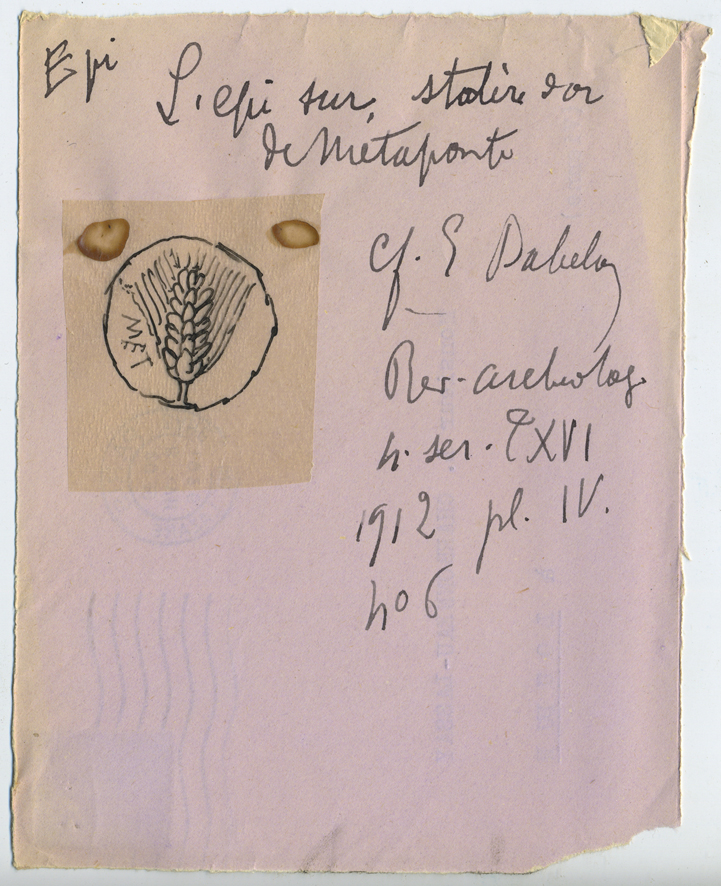 Epi
L'epi sur statère d'or
de Métaponte
MET
cf. E Babelon
Rev. archeolog.
4. ser. T XVI
1912 pl. IV.
no 6